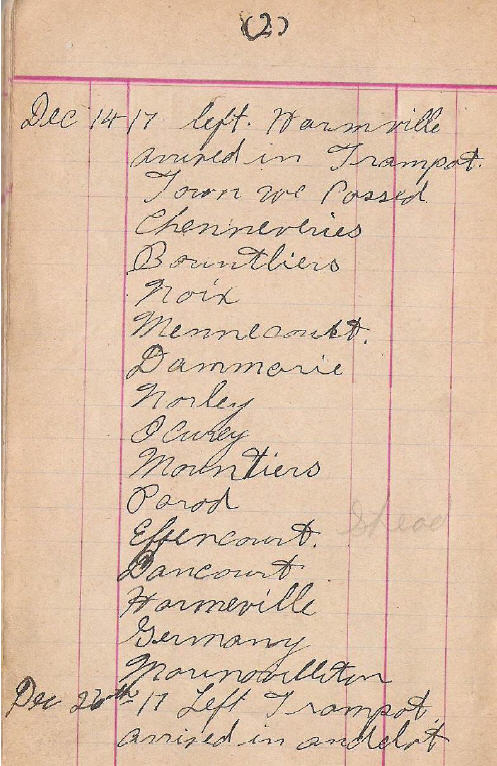 (2)
Dec 14 17 left. Harmville
arrived in Trampot.
Town we Passed
Chenneveries
Bountliers
Noix
Mennecourt.
Dammarie
Norley
Ocurey
Mountiers
Parod
Effencourt.
Pancourt
Harmeville
Germany
Dec 26th 17 Left Trampot,
arrived in andelot